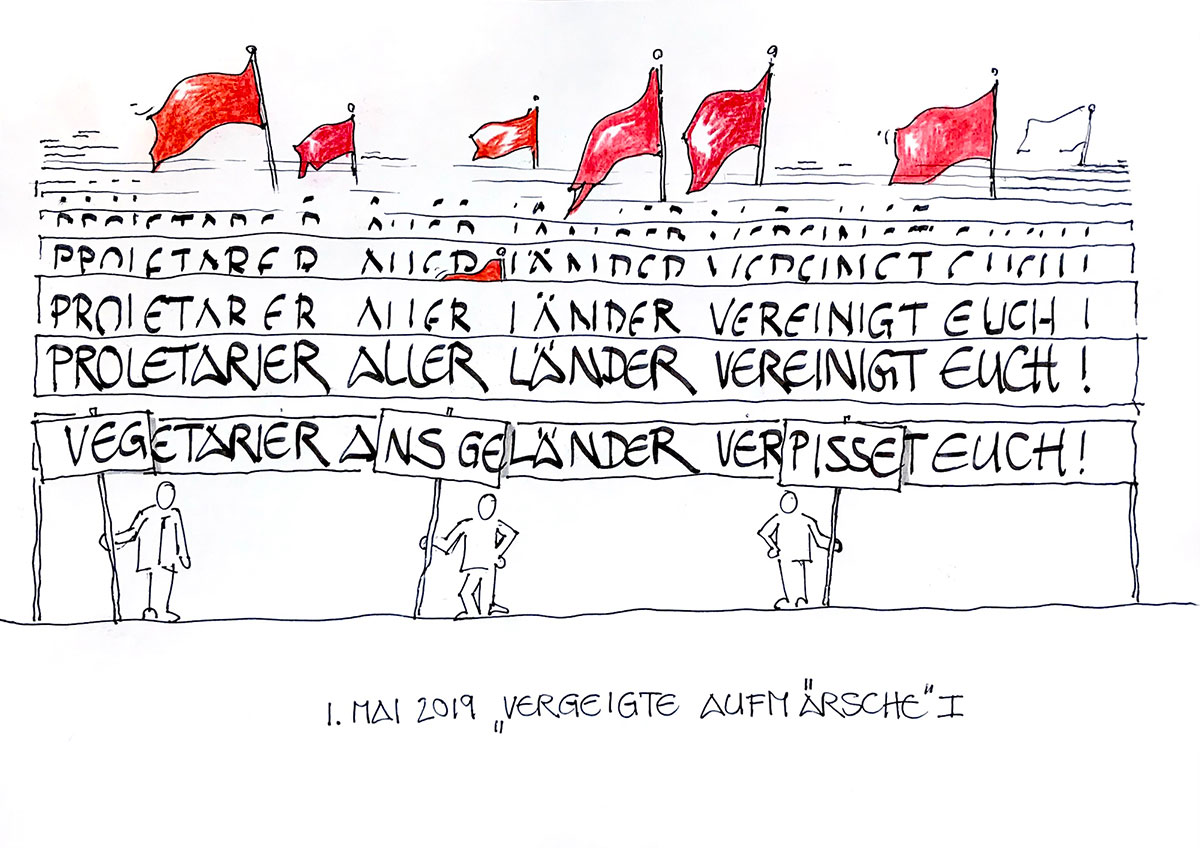 PROLETARIER ALLER LÄNDER VEREINIGT EUCH !
PROLETARIER ALLER LÄNDER VEREINIGT EUCH !
PROLETARIER ALLER LÄNDER VEREINIGT EUCH !
VEGETARIER ANS GELÄNDER VERPISSET EUCH !
1. MAI 2019 „VERGEIGTE AUFMÄRSCHE“ I